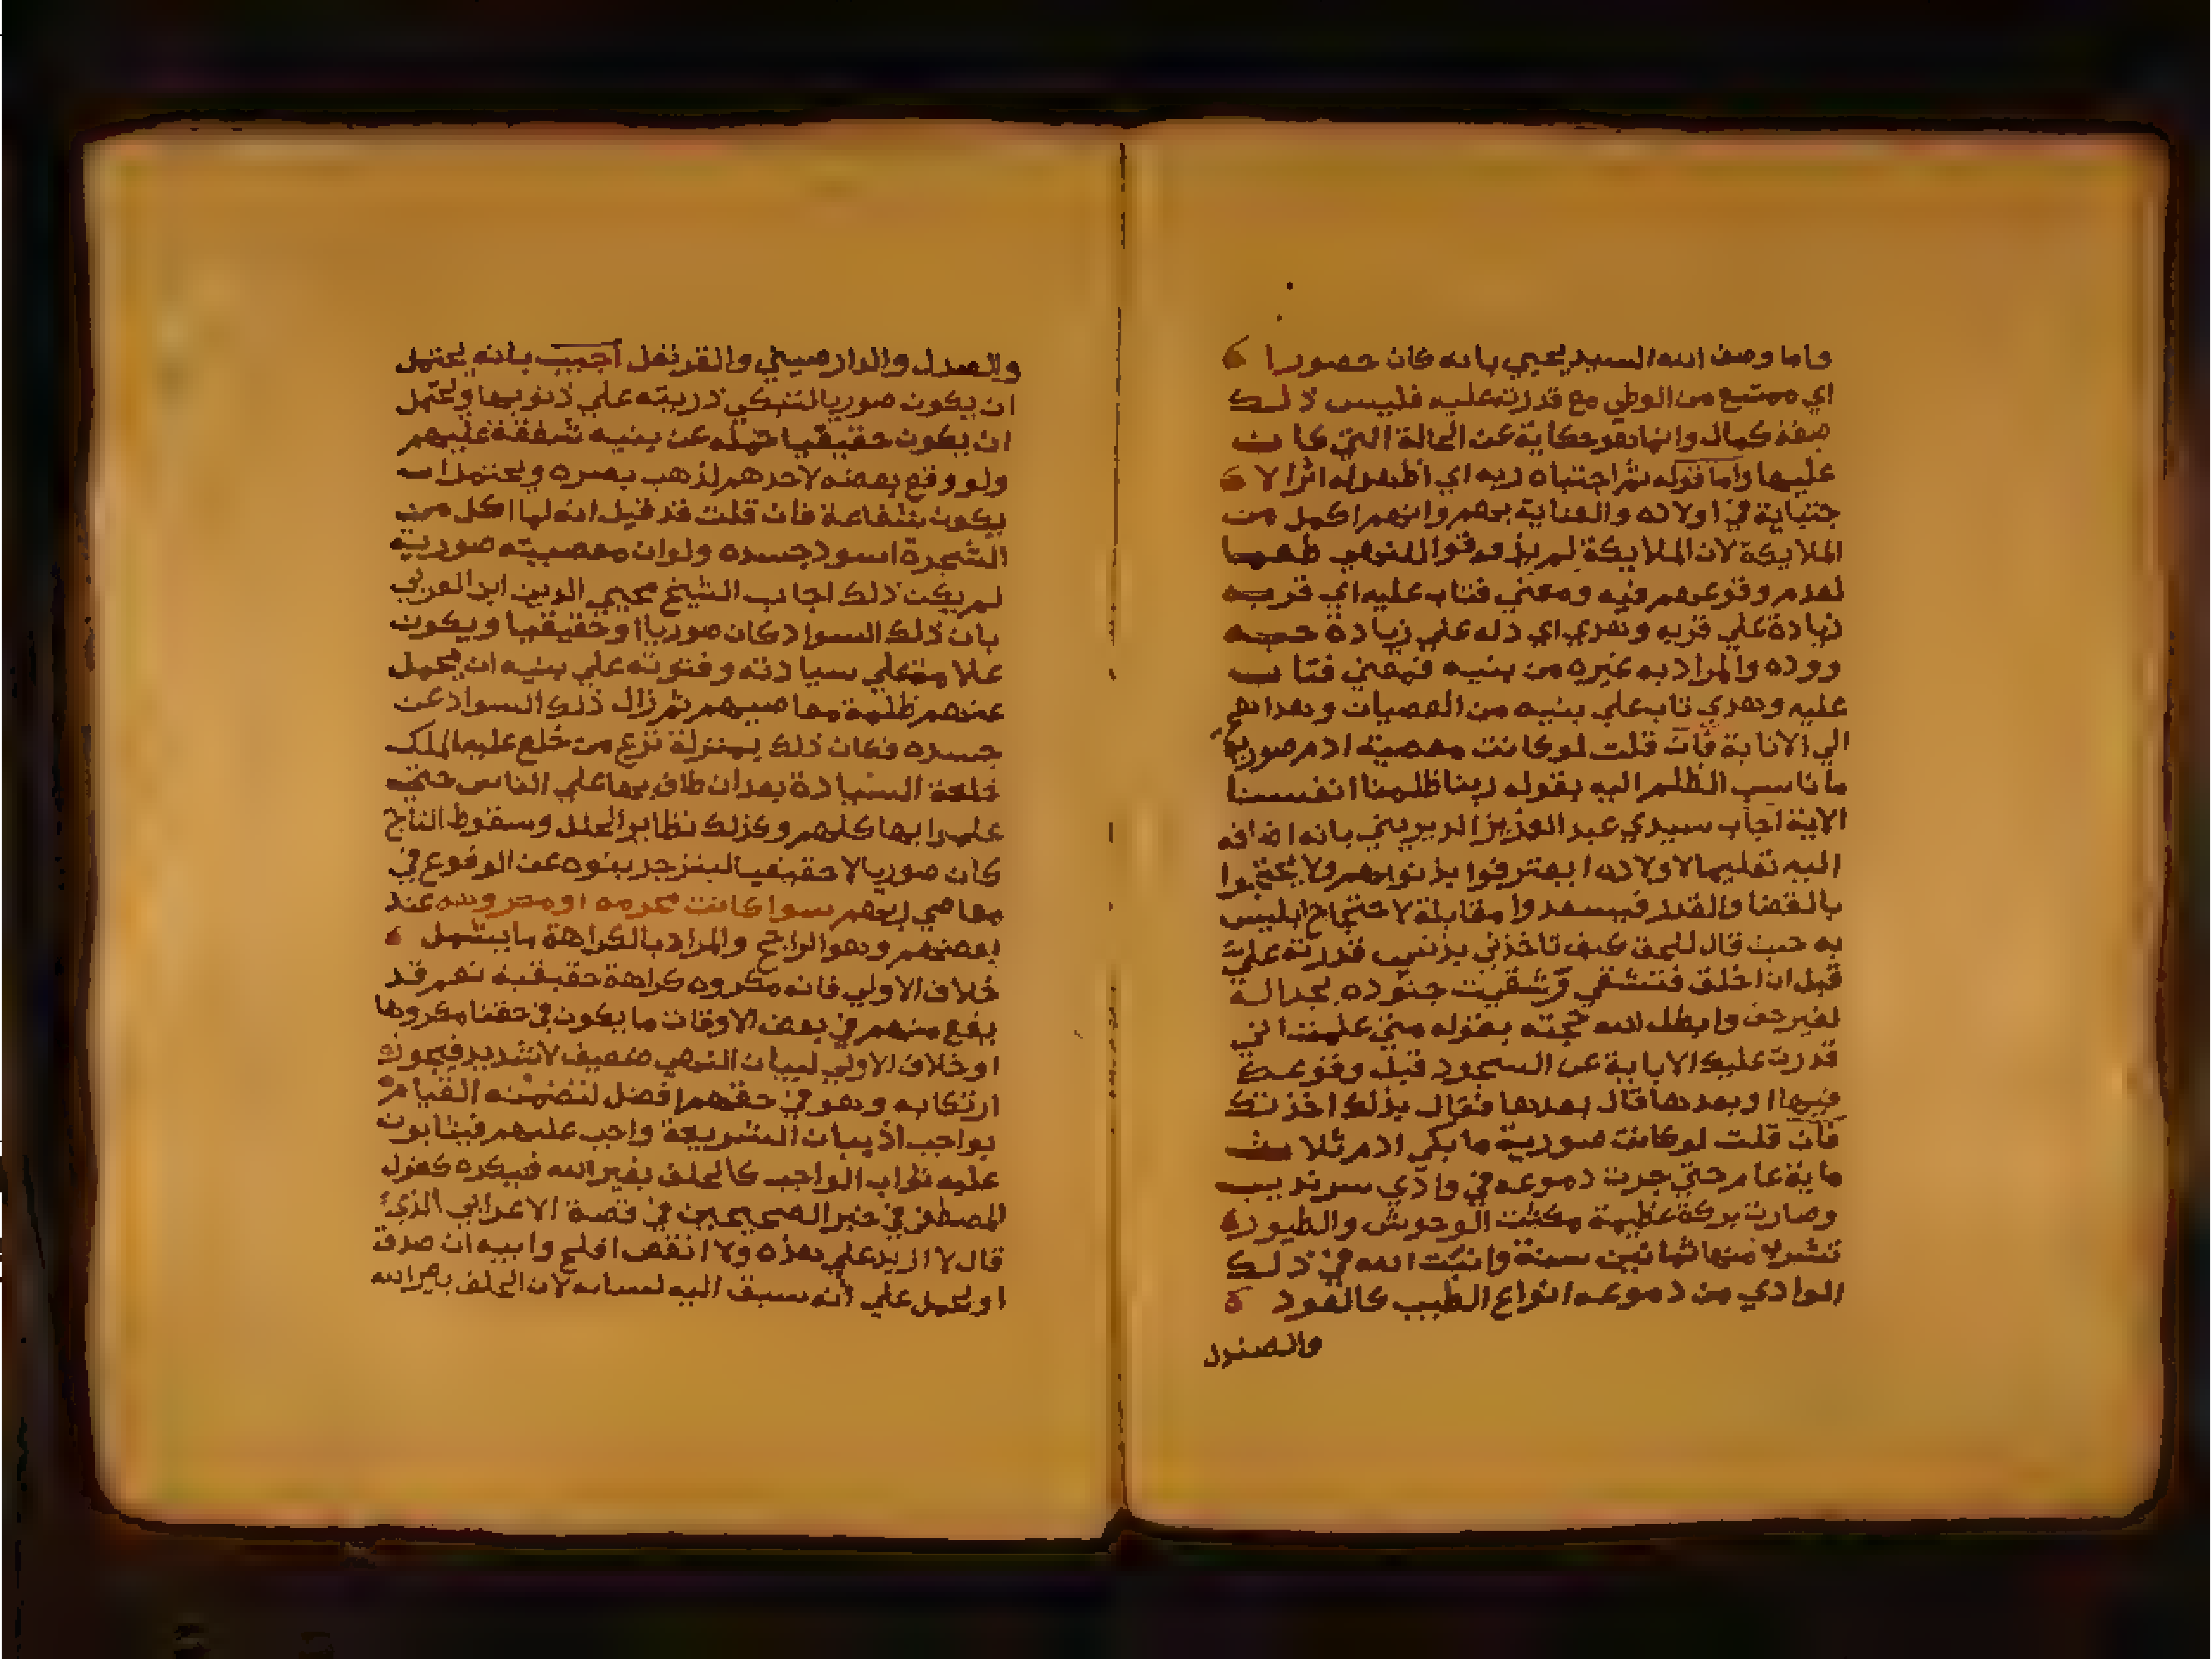 واما وصف الله السيد يحيي بانه كان حصورا
اي ممتنع من الوطي مع قدرته عليه فليس ذلك
صفة كمال وانما هو حكاية عن الحالة التي كان
عليها واما قوله ثم اجتباه ربه اي اظهر له اثر الا
جتباية في اولاده والعناية بهم وانهم اكمل من
الملايكة لان الملايكة لم يذوقوا للنهي طعما
لعدم وقوعهم فيه ومعني فتاب عليه اي قربه
زيادة علي قربه وهدي اي دله علي زيادة حبه
ووده والمراد به غيره من بنيه فمعني فتاب
عليه وهدي تاب علي بنيه من العصيان وهداهم
الي الانابة فان قلت لو كانت معصية ادم صورية
ما ناسب الظلم اليه بقوله ربنا ظلمنا انفسنا
الاية اجاب سيدي عبد العزيز الديريني بانه اضافه
اليه تعليما لاولاده ا يعترفوا بذنوبهم ولا يحتجوا
بالقضا والقدر فيسعدوا مقابلة لاحتجاج ابليس
به حيث قال للحق كيف تاخذني بذنب قدرته علي
قبل ان اخلق فتشقي وشقيت جنوده بجداله
لغير حق وابطل الله حجته بقوله متي علمت اني
قدرت عليك الاباية عن السجود قبل وقوعك
فيها او بعدها قال بعدها فقال بذلك اخذتك
فان قلت لو كانت صورية ما بكي ادم ثلاث
ماية عام حتي جرت دموعه في وادي سرنديب
وصارت بركة عظيمة مكثت الوحوش والطيور
تشرب منها ثمانين سنة وانبت الله في ذلك
الوادي من دموعه انواع الطيب كالعود
والصندل
والصندل والدارصيني والقرنفل اجيب بانه يحتمل
ان يكون صوريا لتبكي ذريته علي ذنوبها ويحتمل
ان يكون حقيقيا حمله عن بنيه شفقة عليهم
ولو وقع بعضه لاحدهم لذهب بصره ويحتمل ان
يكون شفاعة فان قلت قد قيل انه لما اكل من
الشجرة اسود جسده ولو ان معصيته صورية
لم يكن ذلك اجاب الشيخ محيي الدين ابن العربي
بان ذلك السواد كان صوريا او حقيقيا ويكون
علامة علي سيادته وفتوته علي بنيه ان يحمل
عنهم ظلمة معاصيهم ثم زال ذلك السواد عن
جسده فكان ذلك بمنزلة نزع من خلع عليه الملك
خلعة السيادة بعد ان طاف بها علي الناس حتي
علم رايها كلهم وكذلك تطاير الحلل وسقوط التاج
كان صوريا لا حقيقيا لينزجر بنوه عن الوقوع في
معاصي ربهم سوا كانت محرمه او مكروهه عند
بعضهم وهو الراجح والمراد بالكراهة ما يشمل
خلاف الاولي فانه مكروه كراهة حقيقية نعم قد
يقع منهم في بعض الاوقات ما يكون في حقنا مكروها
او خلاف الاولي لبيان النهي ضعيف لا شديد فيجوز
ارتكابه وهو في حقهم افضل لتضمنه القيام
بواجب اذ بيان الشريعة واجب عليهم فيثابون
عليه ثواب الواجب كالحلف بغير الله فيكره كقول
المصطفي في خبر الصحيحين في قصة الاعرابي الذي
قال لا ازيد علي هذه ولا انقص افلح وابيه ان صدق
او يحمل علي انه سبق اليه لسانه لان الحلف بغير الله